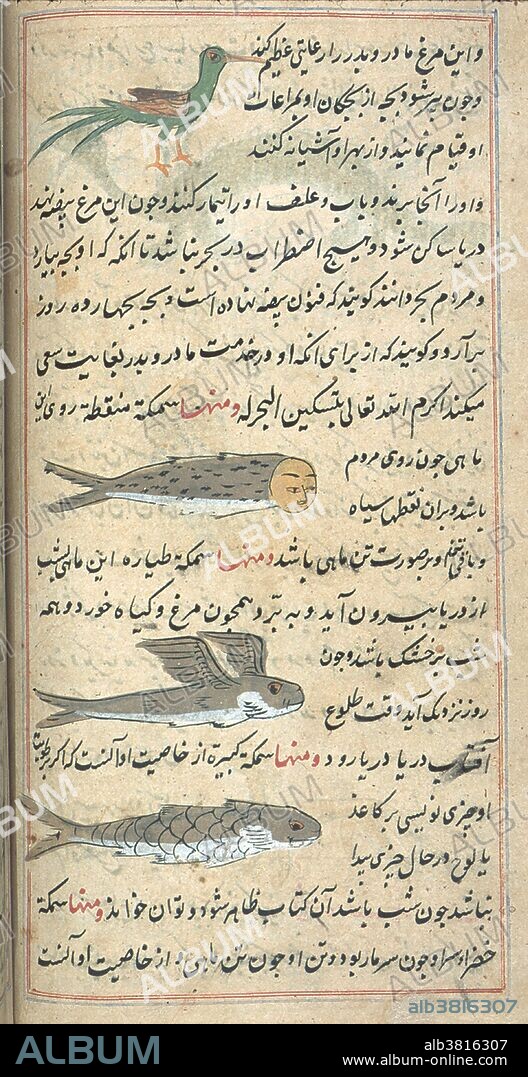 و این مرغ مادر و پدر را رعایتی عظیم کند
و جون پیر شود بجه از بجکان او بمراعات
او قیام نمایند و از بهر او آشیانه کنند
و او را آنجا برند و بآب و علف او را تیمار کنند و جون این مرغ بیضه نهد
دریا ساکن شود و هیچ اضطراب در بحر نباشد تا آنکه که او بجه بیارد
و مردم بحر دانند کویند که بیضه نهاده است و بجه بجهارده روز
برآرد و کویند که از برای آنکه او در خدمت مادر و پدر بغایت سعی
میکند اکرم الله تعالی بتسکین البحر له ومنها سمکة منقطة روی این
ماهی جون روی مردم
باشد و بران نقطها سیاه
و باقی او بر صورت تن ماهی باشد ومنها سمکة طیاره این ماهی بشب
از دریا بیرون آید و به برد همجون مرغ و کیاه خورد و همه
شب بر خشک باشد و جون
روز نزدیک آید وقت طلوع
آفتاب در دریا رود ومنها سمکة کبیرة از خاصیت او آنست که اکر
او جیزی نویسی بر کاغذ
یا لوح در حال جیزی پیدا
نباشد جون شب باشد آن کتاب ظاهر شود و توان خواند ومنها سمکة
خضراء سر او جون سر مار بود و تن او جون تن ماهی و از خاصیت او آنست
alb3816307
ALBUM
alb3816307
www.album-online.com